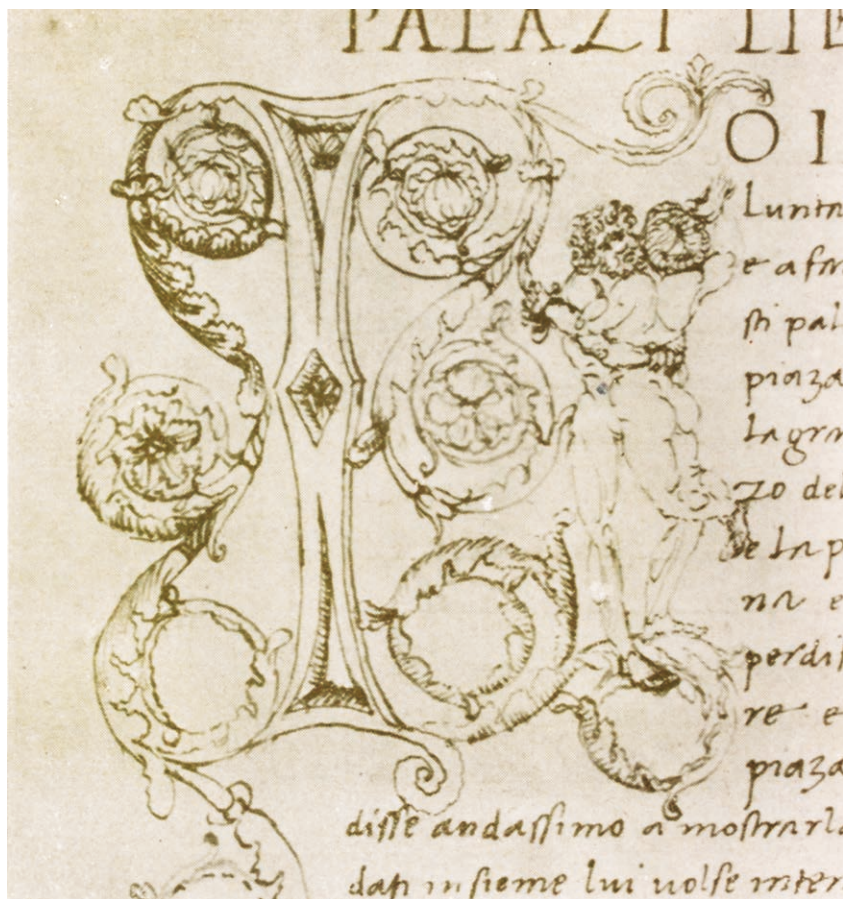 PALAZI LIE
O I
Lunta
e a far
sti pal
piaza
La gra
zo del
e La p
na e
perdis
re e
piaza
disse andassimo a mostrarla
dati insieme lui uolse inten